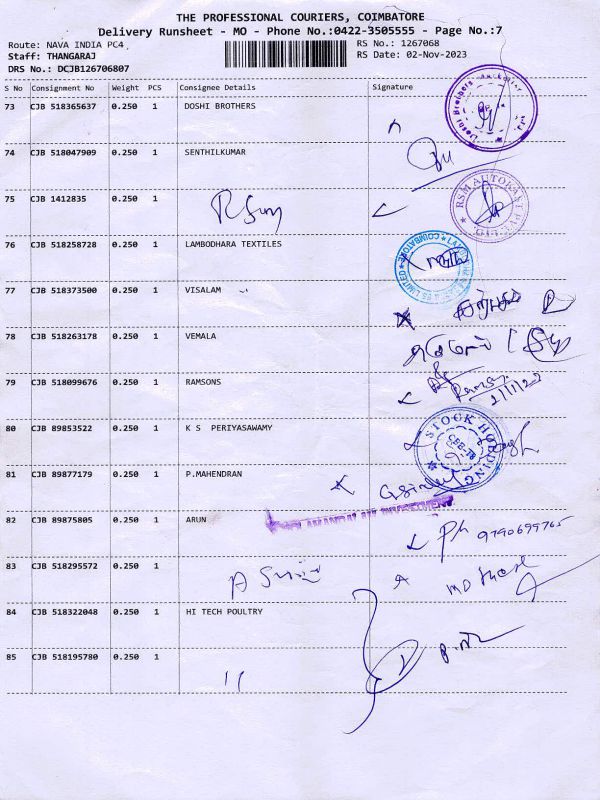 THE PROFESSIONAL COURIERS, COIMBATORE
Delivery Runsheet - MO - Phone No.:0422-3505555 - Page No.:7
Route: NAVA INDIA PC4 RS No.: 1267068
Staff: THANGARAJ RS Date: 02-Nov-2023
DRS No.: DCJB126706807
S No Consignment No Weight PCS Consignee Details Signature
73 CJB 518365637 0.250 1 DOSHI BROTHERS
74 CJB 518047909 0.250 1 SENTHILKUMAR
75 CJB 1412835 0.250 1 RSM AUTOKAST
76 CJB 518258728 0.250 1 LAMBODHARA TEXTILES
77 CJB 518373500 0.250 1 VISALAM
78 CJB 518263178 0.250 1 VEMALA
79 CJB 518099676 0.250 1 RAMSONS
80 CJB 89853522 0.250 1 K S PERIYASAWAMY
STOCK HOLDING
81 CJB 89877179 0.250 1 P.MAHENDRAN
82 CJB 89875805 0.250 1 ARUN
Ph 9790699765
83 CJB 518295572 0.250 1
84 CJB 518322048 0.250 1 HI TECH POULTRY
85 CJB 518195780 0.250 1 11